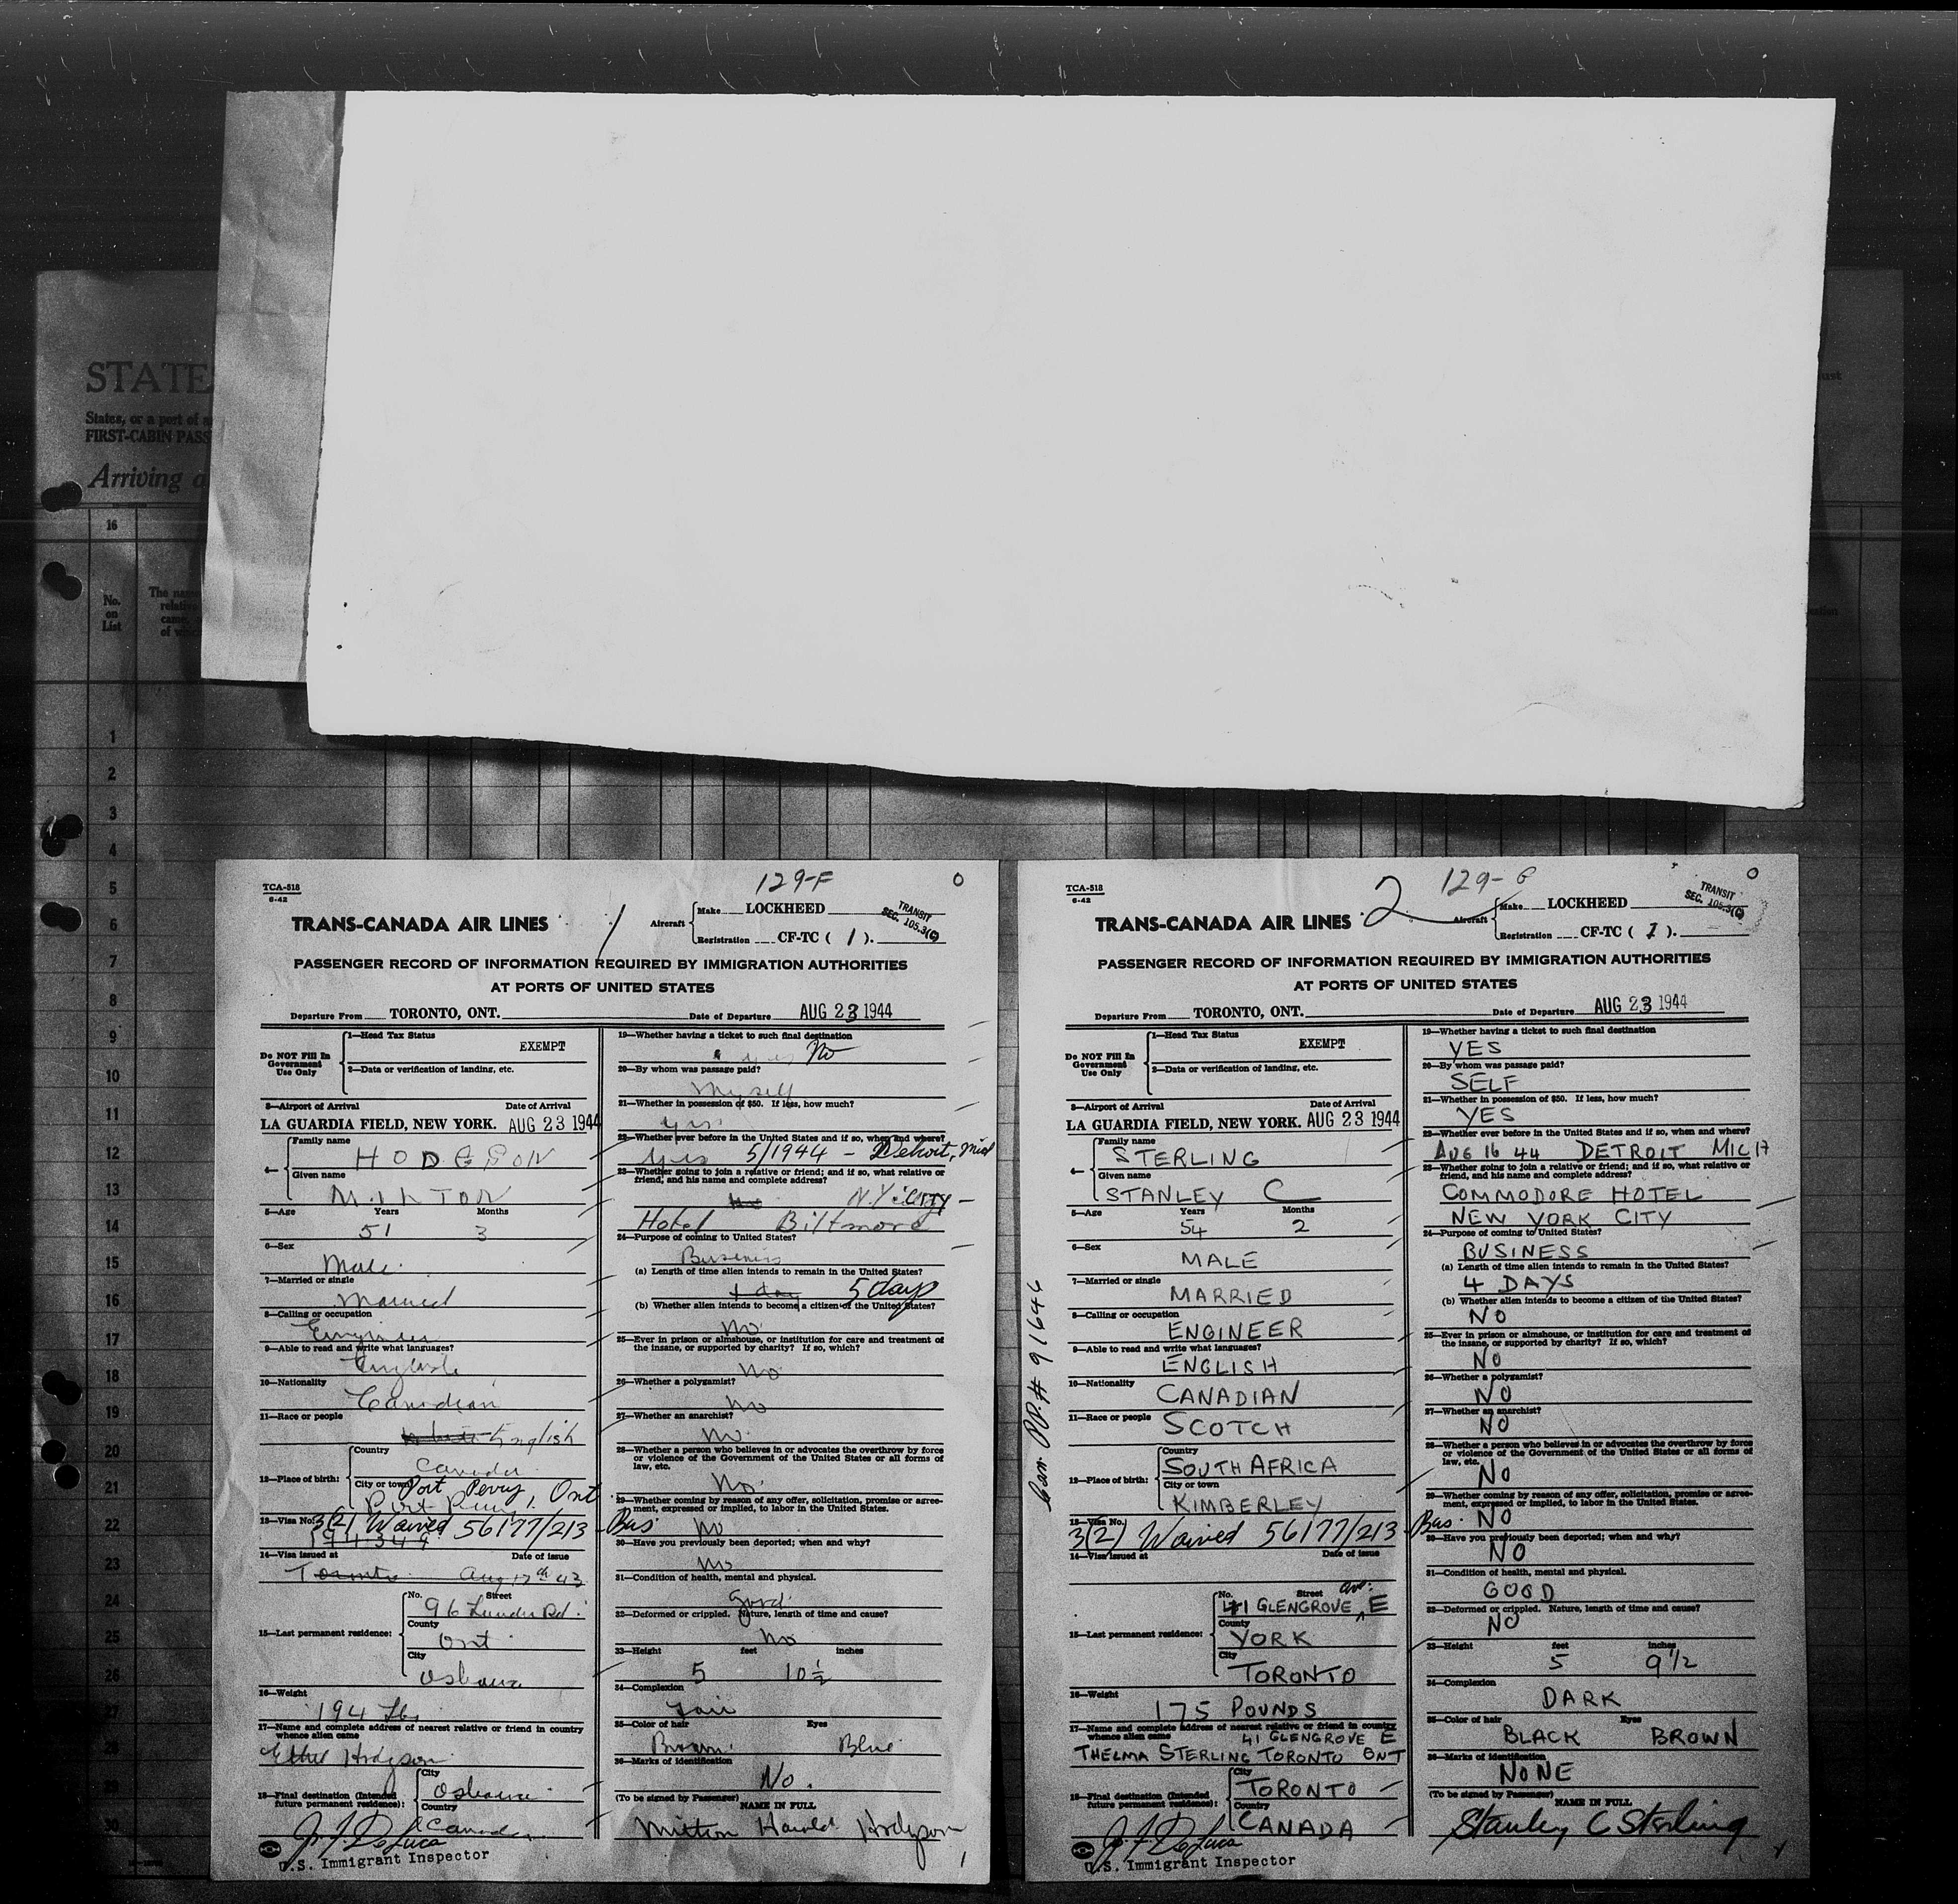 STATE
States, or a port of
FIRST-CABIN PASS
Arriving
16
No.
on
List
The
relative
came,
of
1
2
3
4
5
6
7
8
9
10
11
12
13
14
15
16
17
18
19
20
21
22
23
24
25
26
27
28
29
30
129-F
O
TCA-518
6-42
TRANS-CANADA AIR LINES
1
Aircraft
Make LOCKHEED
Registration CF-TC ( 1 ).
TRANSIT
SEC. 105.3(C)
PASSENGER RECORD OF INFORMATION REQUIRED BY IMMIGRATION AUTHORITIES
AT PORTS OF UNITED STATES
Departure From TORONTO, ONT. Date of Departure AUG 23 1944
Do NOT Fill In
Government
Use Only
1—Head Tax Status
EXEMPT
2—Data or verification of landing, etc.
3—Airport of Arrival Date of Arrival
LA GUARDIA FIELD, NEW YORK. AUG 23 1944
4—
Family name
HODGSON
Given name
MILTON
5—Age Years Months
51 3
6—Sex
Male
7—Married or single
Married
8—Calling or occupation
Engineer
9—Able to read and write what languages?
English
10—Nationality
Canadian
11—Race or people
English
12—Place of birth:
Country
Canada
City or town
Port Perry, Ont
Port Perry
13—Visa No.
3(2) Waived 56177/213 Bus.
14—Visa issued at Date of issue
Toronto Aug 17th 43
15—Last permanent residence:
No. Street
96 Rd.
County
Ont
City
Oshawa
16—Weight
194 Lbs
17—Name and complete address of nearest relative or friend in country
whence alien came
Ethel Hodgson
18—Final destination (Intended
future permanent residence):
City
Oshawa
Country
Canada
J. F. DeLuca
U.S. Immigrant Inspector
19—Whether having a ticket to such final destination
yes No
20—By whom was passage paid?
Myself
21—Whether in possession of $50. If less, how much?
yes
22—Whether ever before in the United States and if so, when and where?
yes 5/1944 - Detroit, Mich
23—Whether going to join a relative or friend; and if so, what relative or
friend, and his name and complete address?
No N.Y. City
Hotel Biltmore
24—Purpose of coming to United States?
Business
(a) Length of time alien intends to remain in the United States?
1 day 5 days
(b) Whether alien intends to become a citizen of the United States?
No
25—Ever in prison or almshouse, or institution for care and treatment of
the insane, or supported by charity? If so, which?
No
26—Whether a polygamist?
No
27—Whether an anarchist?
No
28—Whether a person who believes in or advocates the overthrow by force
or violence of the Government of the United States or all forms of
law, etc.
No
29—Whether coming by reason of any offer, solicitation, promise or agree-
ment, expressed or implied, to labor in the United States.
No
30—Have you previously been deported; when and why?
No
31—Condition of health, mental and physical.
Good
32—Deformed or crippled. Nature, length of time and cause?
No
33—Height feet inches
5 10½
34—Complexion
Fair
35—Color of hair Eyes
Brown Blue
36—Marks of identification
No.
(To be signed by Passenger)
NAME IN FULL
Milton Harold Hodgson
1
129-G
O
TCA-518
6-42
TRANS-CANADA AIR LINES
2
Aircraft
Make LOCKHEED
Registration CF-TC ( 1 ).
TRANSIT
SEC. 105.3(C)
PASSENGER RECORD OF INFORMATION REQUIRED BY IMMIGRATION AUTHORITIES
AT PORTS OF UNITED STATES
Departure From TORONTO, ONT. Date of Departure AUG 23 1944
Do NOT Fill In
Government
Use Only
1—Head Tax Status
EXEMPT
2—Data or verification of landing, etc.
3—Airport of Arrival Date of Arrival
LA GUARDIA FIELD, NEW YORK. AUG 23 1944
4—
Family name
STERLING
Given name
STANLEY C
5—Age Years Months
54 2
6—Sex
MALE
7—Married or single
MARRIED
8—Calling or occupation
ENGINEER
9—Able to read and write what languages?
ENGLISH
10—Nationality
CANADIAN
11—Race or people
SCOTCH
12—Place of birth:
Country
SOUTH AFRICA
City or town
KIMBERLEY
13—Visa No.
3(2) Waived 56177/213 Bus.
14—Visa issued at Date of issue
15—Last permanent residence:
No. Street
41 GLENGROVE Ave. E
County
YORK
City
TORONTO
16—Weight
175 POUNDS
17—Name and complete address of nearest relative or friend in country
whence alien came 41 GLENGROVE E
THELMA STERLING TORONTO ONT
18—Final destination (Intended
future permanent residence):
City
TORONTO
Country
CANADA
J. F. DeLuca
U.S. Immigrant Inspector
Can. PP. # 91646
19—Whether having a ticket to such final destination
YES
20—By whom was passage paid?
SELF
21—Whether in possession of $50. If less, how much?
YES
22—Whether ever before in the United States and if so, when and where?
AUG 16 44 DETROIT MICH
23—Whether going to join a relative or friend; and if so, what relative or
friend, and his name and complete address?
COMMODORE HOTEL
NEW YORK CITY
24—Purpose of coming to United States?
BUSINESS
(a) Length of time alien intends to remain in the United States?
4 DAYS
(b) Whether alien intends to become a citizen of the United States?
NO
25—Ever in prison or almshouse, or institution for care and treatment of
the insane, or supported by charity? If so, which?
NO
26—Whether a polygamist?
NO
27—Whether an anarchist?
NO
28—Whether a person who believes in or advocates the overthrow by force
or violence of the Government of the United States or all forms of
law, etc.
NO
29—Whether coming by reason of any offer, solicitation, promise or agree-
ment, expressed or implied, to labor in the United States.
NO
30—Have you previously been deported; when and why?
NO
31—Condition of health, mental and physical.
GOOD
32—Deformed or crippled. Nature, length of time and cause?
NO
33—Height feet inches
5 9 1/2
34—Complexion
DARK
35—Color of hair Eyes
BLACK BROWN
36—Marks of identification
NONE
(To be signed by Passenger)
NAME IN FULL
Stanley C Sterling